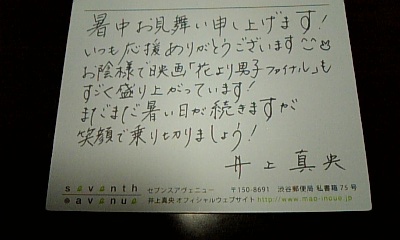 暑中お見舞い申し上げます!
いつも応援ありがとうございます
お陰様で映画「花より男子ファイナル」も
すごく盛り上がっています!
まだまだ暑い日が続きますが
笑顔で乗り切りましょう!
井上真央
sevanth avanue
セブンスアヴェニュー 〒150-8691 渋谷郵便局 私書箱75号
井上真央オフィシャルウェブサイト http://www.mao-inoue.jp